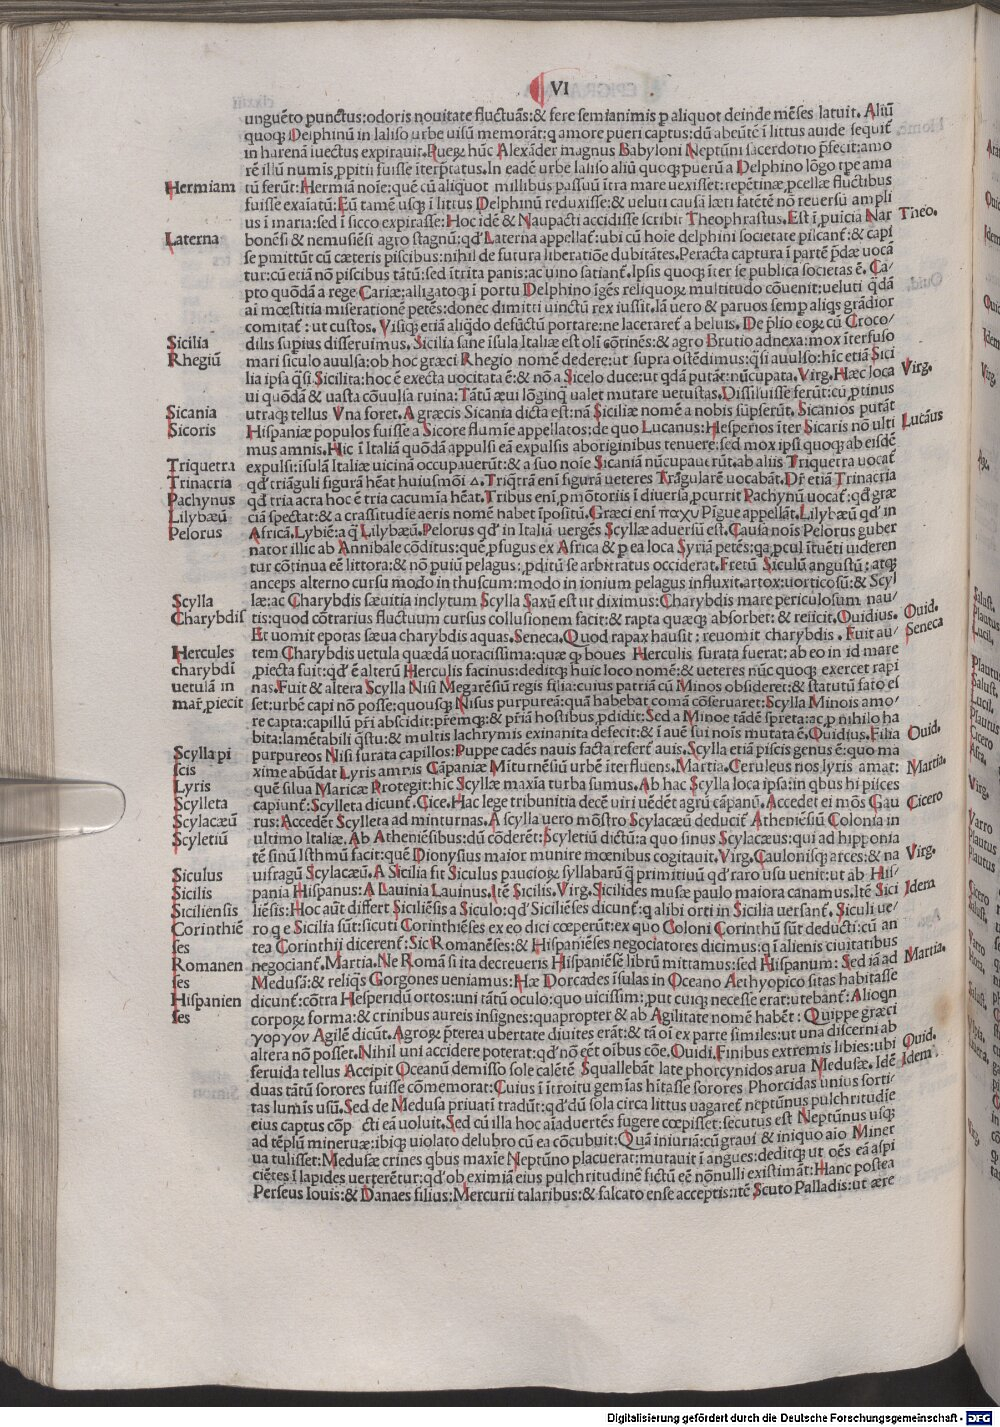 VI
unguẽto punctus:odoris nouitate fluctuãs:& fere semianimis p aliquot deinde mẽses latuit. Aliũ
quoqȝ Delphinũ in Iasiso urbe uisũ memorãt:q amore pueri captus:dũ abeũtẽ ĩ littus auide sequit̃
in harenã iuectus expirauit.Puerꝝ hũc Alexãder magnus Babyloni Neptũni sacerdotio p̃fecit:amo
Hermiam tũ ferũt:Hermiã noĩe:quẽ cũ aliquot millibus passuũ ĩtra mare uexisset:repẽtinæ ꝓcellæ fluctibus
fuisse exaĩatũ: Eũ tamẽ usqȝ ĩ littus Delphinũ reduxisse:& ueluti causã læti fatẽtẽ nõ reuersũ ampli
us ĩ maria:sed ĩ sicco expirasse:Hoc idẽ & Naupacti accidisse scribit Theophrastus.Est ĩ ꝓuĩcia Nar Theo.
Laterna bonẽsi & nemusiẽsi agro stagnũ:qd̃ Laterna appellat̃:ubi cũ hoĩe delphini societate piscant̃:& capi
se pmittũt cũ cæteris piscibus:nihil de futura liberatiõe dubitãtes.Peracta captura ĩ partẽ p̃dæ uocã
tur:cũ etiã nõ piscibus tãtũ:sed ĩtrita panis:ac uino satiant̃.Ipsis quoqȝ ĩter se publica societas ẽ. Ca/
pto quõdã a rege Cariæ:alligatoqȝ ĩ portu Delphino ĩgẽs reliquoꝝ multitudo cõuenit:ueluti q̃dã
ai mœstitia miserationẽ petẽs:donec dimitti uinctũ rex iussit.Iã uero & paruos semp aliqs grãdior
comitat̃:ut custos. Visiqȝ etiã aliq̃do defũctũ portare:ne laceraret̃ a beluis. De p̃lio eoꝝ cũ Croco/
Sicilia dilis supius disseruimus. Sicilia sane ĩsula Italiæ est oli cõtinẽs:& agro Brutio adnexa:mox ĩterfuso
Rhegiũ mari siculo auulsa:ob hoc græci Rhegio nomẽ dedere:ut supra ostẽdimus:q̃si auulso:hĩc etiã Sici
lia ipsa q̃si Sicilita:hoc ẽ execta uocitata ẽ:& nõ a Sicelo duce:ut qdã putãt:nũcupata. Virg.Hæc loca Virg.
ui quõdã & uasta cõuulsa ruina:Tãtũ æui lõginq̃ ualet mutare uetustas.Dissiluisse ferũt:cũ ꝓtinus
Sicania utraqȝ tellus Vna foret.A græcis Sicania dicta est:nã Siciliæ nomẽ a nobis sũpserũt. Sicanios putãt
Sicoris Hispaniæ populos fuisse a Sicore flumĩe appellatos:de quo Lucanus:Hesperios ĩter Sicaris nõ ulti Lucãus
mus amnis.Hic ĩ Italiã quõdã appulsi eã expulsis aboriginibus tenuere:sed mox ipsi quoqȝ ab eisdẽ
Triquetra expulsi:ĩsulã Italiæ uicinã occupauerũt:& a suo noĩe Sicaniã nũcupauerũt.ab aliis Triquetra uocat̃
Trinacria qd̃ triãguli figurã hẽat huiusmõi △.Triq̃trã eni figurã ueteres Triãgularẽ uocabãt.Dr̃ etiã Trinacria
Pachynus qd̃ tria acra hoc ẽ tria cacumĩa hẽat.Tribus eni ꝓmõtoriis ĩ diuersa ꝓcurrit Pachynũ uocat̃:qd̃ græ
Lilybæũ ciã spectat:& a crassitudĩe aeris nomẽ habet ĩpositũ. Græci eni παχυ Pĩgue appellãt.Lilybæũ qd̃ in
Pelorus Africã.Lybiẽ:a q̃ Lilybæũ.Pelorus qd̃ in Italiã uergẽs Scyllæ aduersũ est.Causa noĩs Pelorus guber
nator illic ab Annibale cõditus:que ꝓfugus ex Africa & p ea loca Syriã petẽs:qa ꝓcul ĩtuẽti uideren
tur cõtinua eẽ littora:& nõ puiũ pelagus:ꝓditũ se arbitratus occiderat.Fretũ Siculũ angustũ:atqȝ
anceps alterno cursu modo in thuscum:modo in ionium pelagus influxit.artox:uorticosũ:& Scyl
Scylla læ:ac Charybdis sæuitia inclytum Scylla Saxũ est ut diximus:Charybdis mare periculosum nau/
Charybdis tis:quod cõtrarius fluctuum cursus collusionem facit:& rapta quæqȝ absorbet:& reiicit.Ouidius. Ouid.
Et uomit epotas sæua charybdis aquas.Seneca.Quod rapax hausit:reuomit charybdis.Fuit au/ Seneca
Hercules tem Charybdis uetula quædã uoracissima:quæ qꝫ boues Herculis furata fuerat:ab eo in id mare
charybdĩ ꝓiecta fuit:qd̃ ẽ alterũ Herculis facinus:deditqȝ huic loco nomẽ:& ueteres nũc quoqȝ exercet rapi
uetulã in nas.Fuit & altera Scylla Nisi Megarẽsiũ regis filia:cuius patriã cũ Minos obsideret:& statutũ fato es
mar ꝓiecit set:urbẽ capi nõ posse:quousqȝ Nisus purpureã:quã habebat comã cõseruaret:Scylla Minois amo/
re capta:capillũ pr̃i abscidit:p̃remqȝ:& pr̃iã hostibus ꝓdidit:Sed a Minoe tãdẽ spreta:ac p nihilo ha
bita:lamẽtabili q̃stu:& multis lachrymis exinanita defecit:& ĩ auẽ sui noĩs mutata ẽ.Ouidius.Filia Ouid.
Scylla pi purpureos Nisi furata capillos:Puppe cadẽs nauis facta refert̃ auis.Scylla etiã piscis genus ẽ:quo ma
scis xime abũdat Lyris amnis Cãpaniæ Mĩturnẽsiũ urbẽ ĩterfluens.Martia.Ceruleus nos lyris amat: Martia.
Lyris quẽ silua Maricæ Protegit:hĩc Scyllæ maxĩa turba sumus.Ab hac Scylla loca ipsa:in qbus hi pisces
Scylleta capiunt̃:Scylleta dicunt̃.Cice.Hac lege tribunitia decẽ uiri uẽdẽt agrũ cãpanũ.Accedet ei mõs Gau Cicero
Scylacæũ rus:Accedẽt Scylleta ad minturnas.A scylla uero mõstro Scylacæũ deducit̃ Atheniẽsiũ Colonia in
Scyletiũ ultimo Italiæ.Ab Atheniẽsibus:dũ cõderẽt:Scyletiũ dictũ:a quo sinus Scylacæus:qui ad hipponia
tẽ sinũ Isthmũ facit:quẽ Dionysius maior munire mœnibus cogitauit.Virg.Caulonisqȝ arces:& na Virg.
Siculus uifragũ Scylacæũ.A Sicilia fit Siculus paucioꝝ syllabarũ q̃ primitiuũ qd̃ raro usu uenit:ut ab His/
Sicilis pania Hispanus:A Lauinia Lauinus.Itẽ Sicilis.Virg.Sicilides musæ paulo maiora canamus.Itẽ Sici Idem
Siciliensis liẽsis:Hoc aũt differt Siciliẽsis a Siculo:qd̃ Siciliẽses dicunt̃:q alibi orti in Sicilia uersant̃.Siculi ue/
Corinthiẽ ro q e Sicilia sũt:sicuti Corinthiẽses ex eo dici cœperũt:ex quo Coloni Corinthũ sũt deducti:cũ an
ses tea Corinthii dicerent̃:Sic Romanẽses:& Hispaniẽses negociatores dicimus:q ĩ alienis ciuitatibus
Romanen negociant̃.Martia.Ne Romã si ita decreueris Hispaniẽsẽ librũ mittamus:sed Hispanum:Sed iã ad Martia.
ses Medusã:& reliq̃s Gorgones ueniamus:Hæ Dorcades ĩsulas in Oceano Aethyopico sitas habitasse
Hispanien dicunt̃:cõtra Hesperidũ ortos:uni tãtũ oculo:quo uicissim:ꝓut cuiqȝ necesse erat:utebant̃:Alioqn
ses corpoꝝ forma:& crinibus aureis insignes:quapropter & ab Agilitate nomẽ habẽt:Quippe græci
γοργον Agilẽ dicũt.Agroꝝ p̃terea ubertate diuites erãt:& tã oi ex parte similes:ut una discerni ab
altera nõ posset.Nihil uni accidere poterat:qd̃ nõ eẽt oĩbus cõe.Ouidi.Finibus extremis libies:ubi Ouid.
feruida tellus Accipit Oceanũ demisso sole calẽtẽ Squallebãt late phorcynidos arua Medusæ. Idẽ Idem
duas tãtũ sorores fuisse cõmemorat:Cuius ĩ ĩtroitu gemĩas hĩtasse sorores Phorcidas unius sorti/
tas lumĩs usũ.Sed de Medusa priuatĩ tradũt:qd̃ dũ sola circa littus uagaret̃ neptũnus pulchritudĩe
eius captus cõp cti eã uoluit.Sed cũ illa hoc aĩaduertẽs fugere cœpisset:secutus est Neptũnus usqȝ
ad tẽplũ mineruæ:ibiqȝ uiolato delubro cũ ea cõcubuit:Quã iniuriã:cũ graui & iniquo aĩo Miner
ua tulisset:Medusæ crines qbus maxĩe Neptũno placuerat:mutauit ĩ angues:deditqȝ ut oẽs eã aspi
ciẽtes ĩ lapides uerterẽtur:qd̃ ob eximiã eius pulchritudinẽ fictũ eẽ nõnulli existimãt:Hanc postea
Perseus Iouis:& Danaes filius:Mercurii talaribus:& falcato ense acceptis:itẽ Scuto Palladis:ut ære
Digitalisierung gefördert durch die Deutsche Forschungsgemeinschaft - DFG